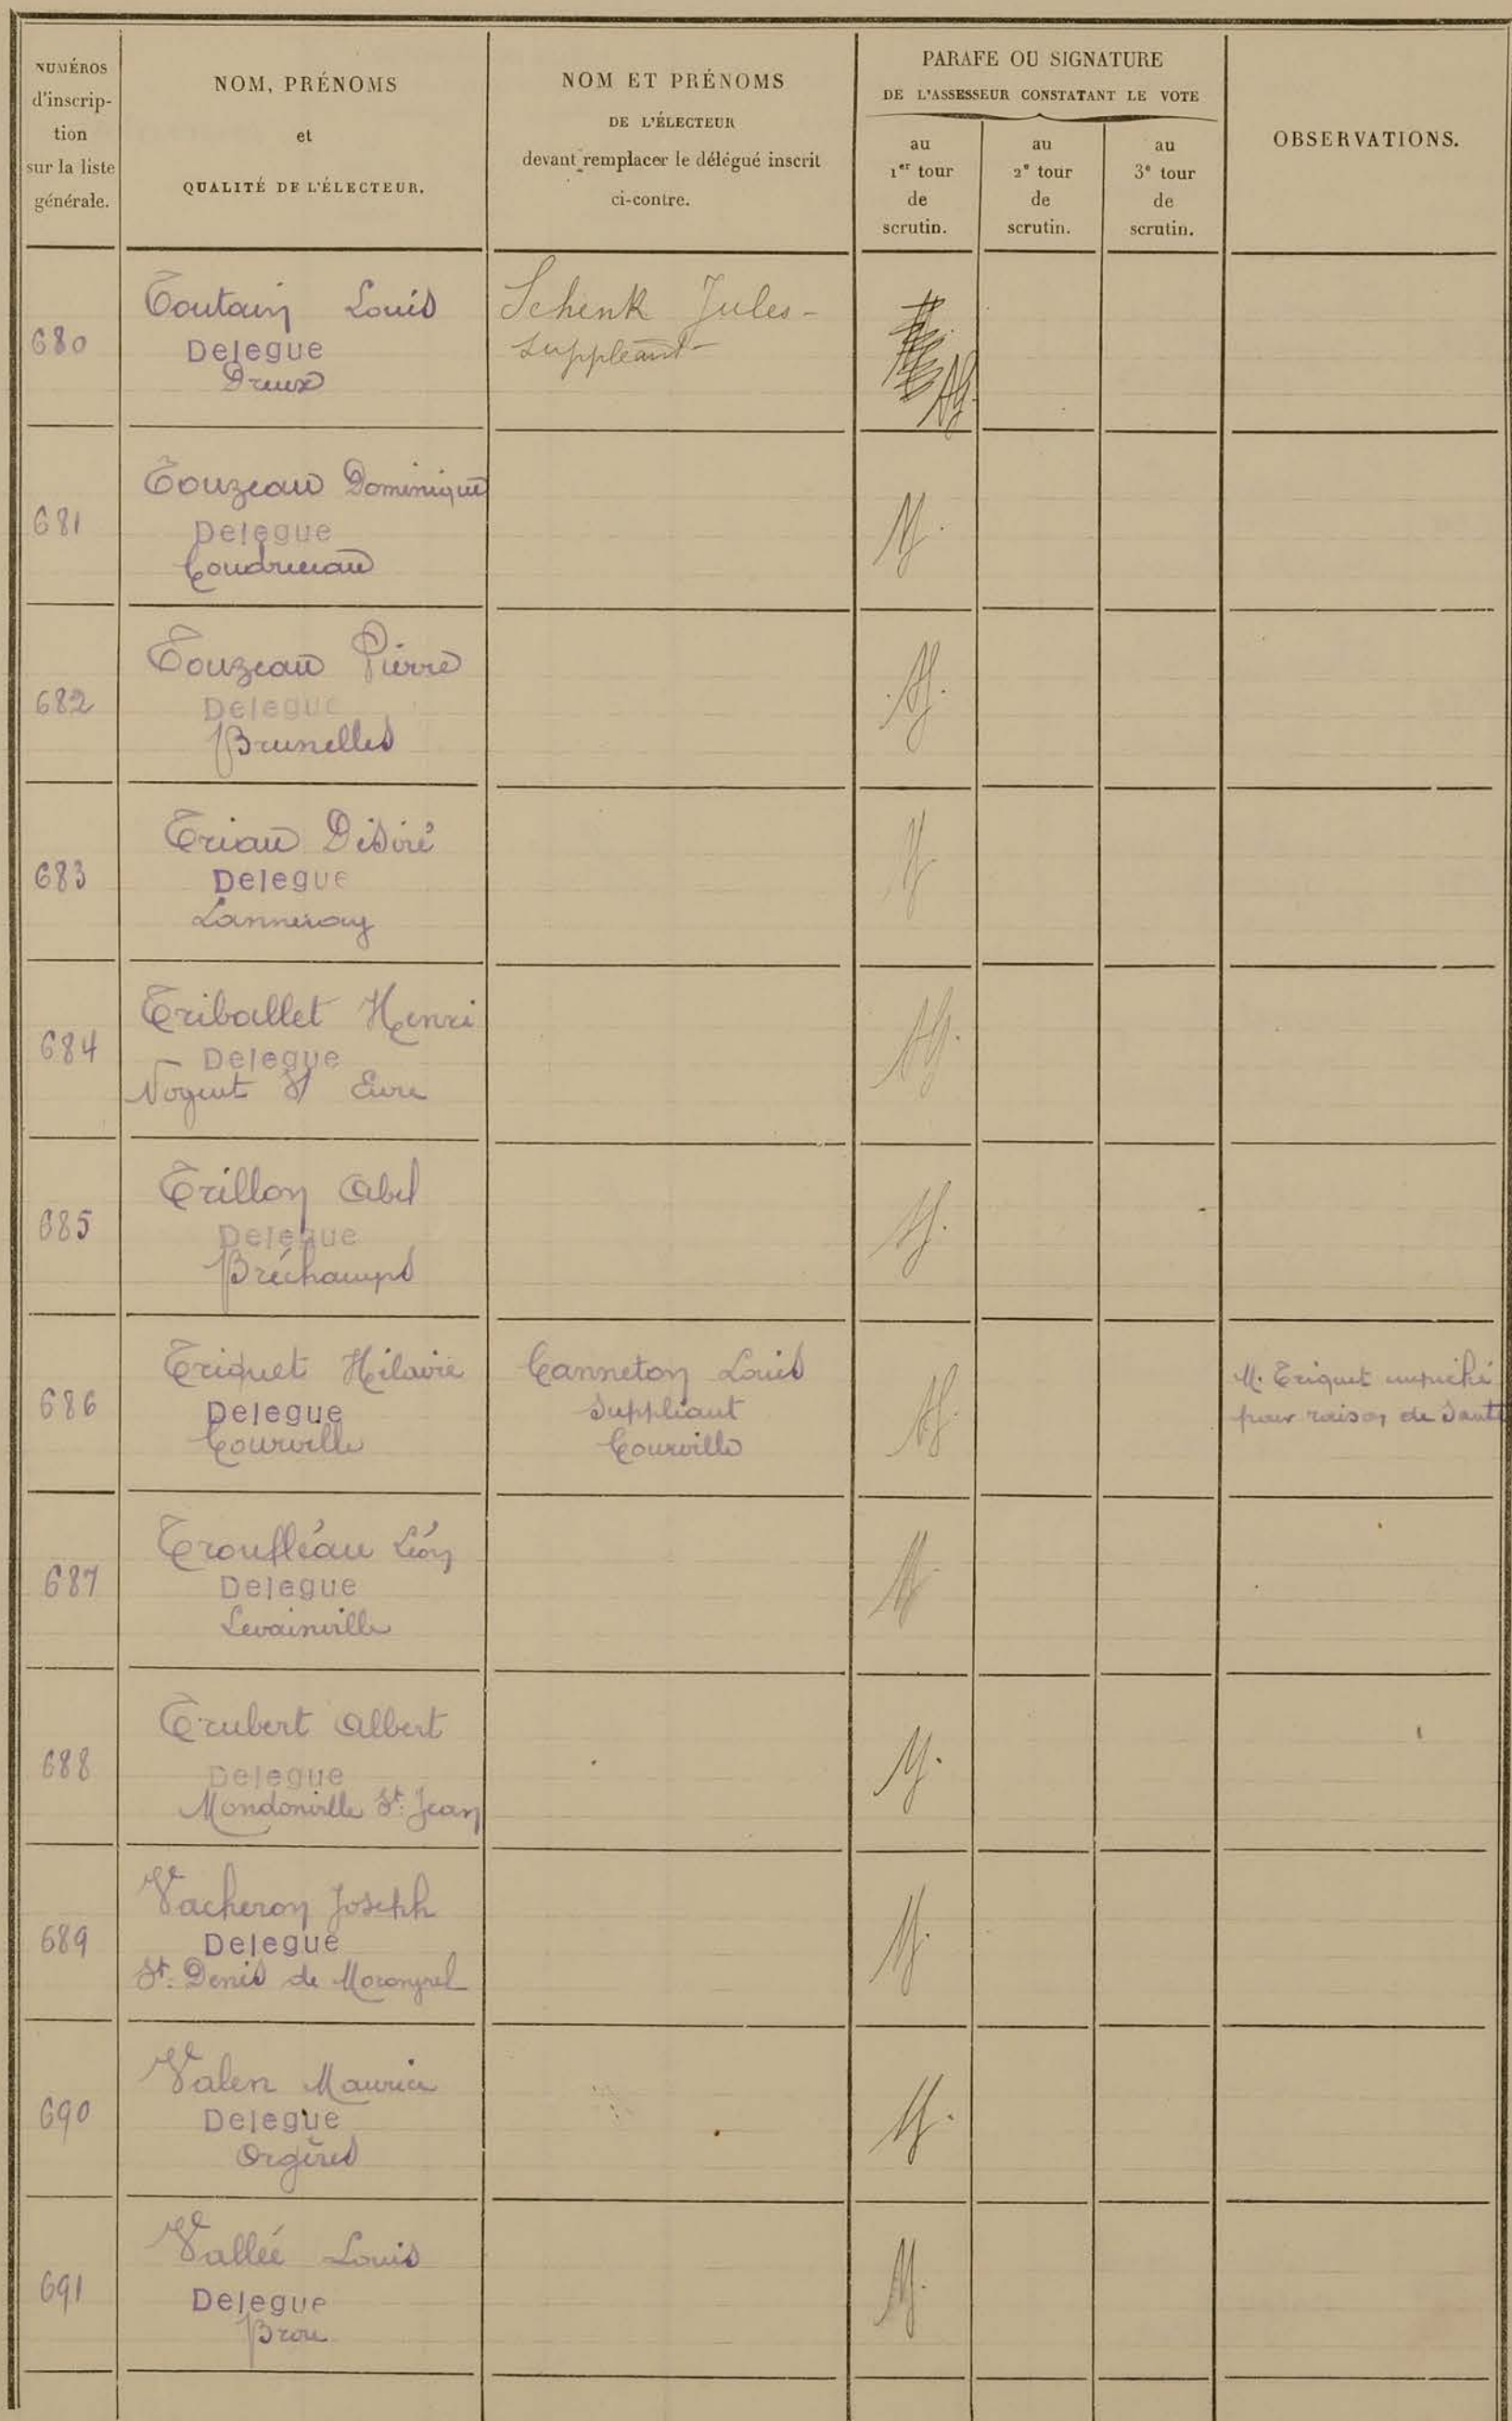 NUMÉROS
d'inscrip-
tion
sur la liste
générale.
NOM, PRÉNOMS
et
QUALITÉ DE L'ÉLECTEUR.
NOM ET PRÉNOMS
DE L'ÉLECTEUR
devant remplacer le délégué inscrit
ci-contre.
PARAFE OU SIGNATURE
DE L'ASSESSEUR CONSTATANT LE VOTE
au
1er tour
de
scrutin.
au
2e tour
de
scrutin.
au
3e tour
de
scrutin.
OBSERVATIONS.
680
Toutain Louis
Delegue
Dreux
Schenk Jules -
suppléant -
681
Touzeau Dominique
Delegue
Coudreceau
682
Touzeau Pierre
Delegue
Brunelles
683
Triau Désiré
Delegue
Lanneray
684
Triballet Henri
Delegue
Nogent s/ Eure
685
Trillon Abel
Delegue
Bréchamps
686
Triquet Hilaire
Delegue
Courville
Canneton Louis
Suppléant
Courville
M. Triquet empêché
pour raison de Santé
687
Troufléau Léon
Delegue
Levainville
688
Trubert Albert
Delegue
Mondonville St. Jean
689
Vacheron Joseph
Delegue
St. Denis de Moronval
690
Valen Maurice
Delegue
Orgères
691
Vallée Louis
Delegue
Brou